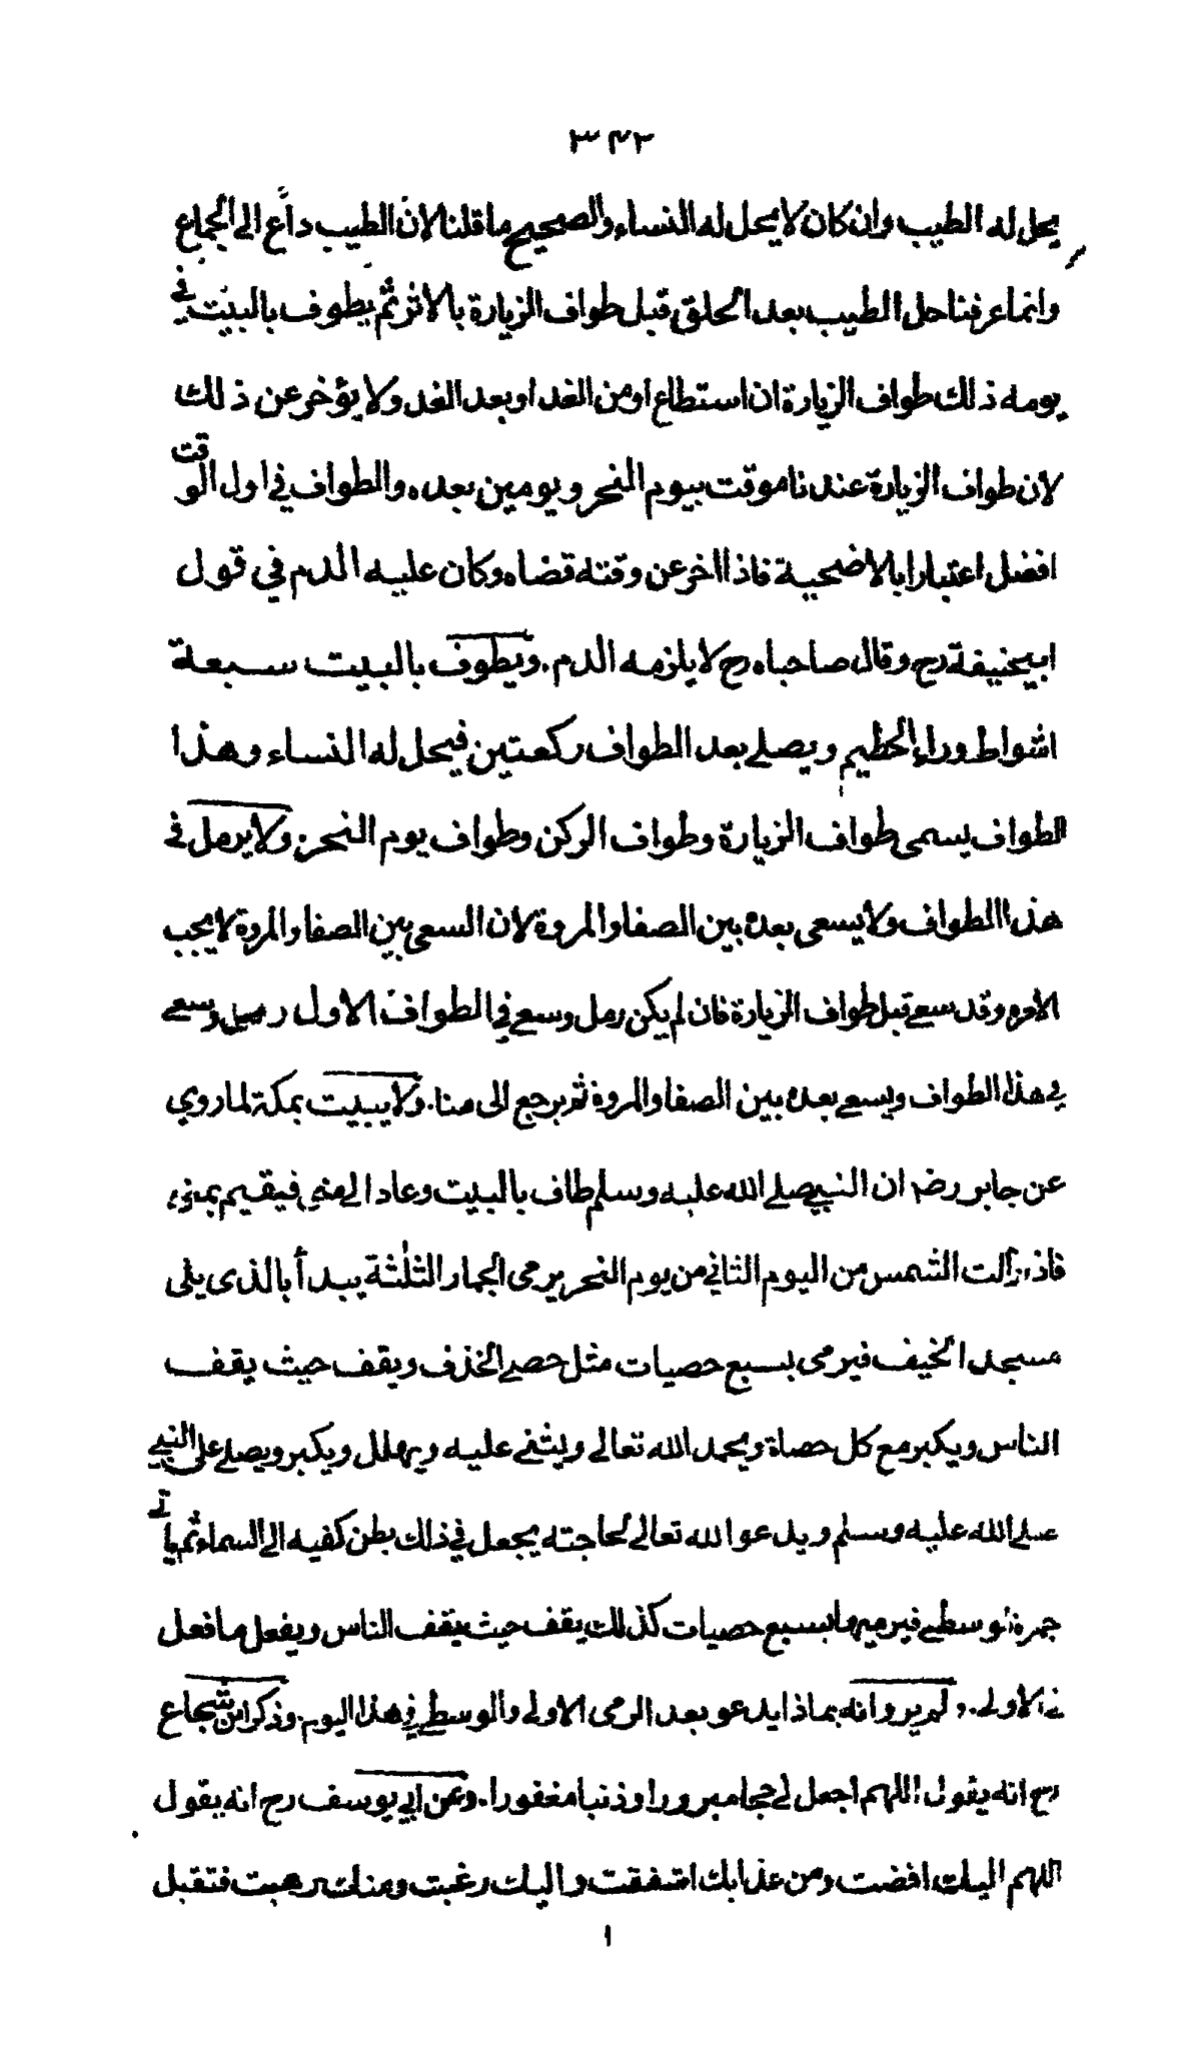 ٣٤٢
يحل له الطيب وان كان لا يحل له النساء والصحيح ما قلنا لان الطيب داع الى الجماع
وانما عرفنا حل الطيب بعد الحلق قبل طواف الزيارة بالاثر ثم يطوف بالبيت في
يومه ذلك طواف الزيارة ان استطاع او من الغد او بعد الغد ولا يؤخر عن ذلك
لان طواف الزيارة عندنا موقت بيوم النحر ويومين بعده والطواف في اول الوقت
افضل اعتبارا بالاضحية فاذا اخر عن وقته قضاه وكان عليه الدم في قول
ابيحنيفة رح وقال صاحباه رح لا يلزمه الدم. ويطوف بالبيت سبعة
اشواط وراء الحطيم ويصلے بعد الطواف ركعتين فيحل له النساء وهذا
الطواف يسمى طواف الزيارة وطواف الركن وطواف يوم النحر. ولا يرمل فى
هذا الطواف ولا يسعى بعده بين الصفا والمروة لان السعى بين الصفا والمروة لا يجب
الامرة وقد سعے قبل طواف الزيارة فان لم يكن رمل وسعے في الطواف الاول رمل وسعے
في هذا الطواف ويسعے بعده بين الصفا والمروة ثم يرجع الى منا. ولا يبيت بمكة لما روي
عن جابر رضم ان النبي صلے الله عليه وسلم طاف بالبيت وعاد الى منى فيقيم بمنى،
فاذا زالت الشمس من اليوم الثاني من يوم النحر يرمى الجمار الثلٰثة يبدأ بالذى يلى
مسجد الخيف فيرمى بسبع حصيات مثل حصے الخذف ويقف حيث يقف
الناس ويكبر مع كل حصاة ويحمد الله تعالى ويثنى عليه ويهلل ويكبر ويصلے على النبي
صلے الله عليه وسلم ويدعو الله تعالى لحاجته يجعل في ذلك بطن كفيه الى السماء ثم يأتى
جمرة الوسطے فيرميها بسبع حصيات كذلك يقف حيث يقف الناس ويفعل ما فعل
في الاولى. ولم يرو انه بماذا يدعو بعد الرمى الاولى والوسطے في هذا اليوم. وذكر ابن شجاع
رح انه يقول اللهم اجعل لى حجا مبرورا وذنبا مغفورا. وعن ابي يوسف رح انه يقول
اللهم اليك افضت ومن عذابك اشفقت واليك رغبت ومنك رهبت فتقبل
ا